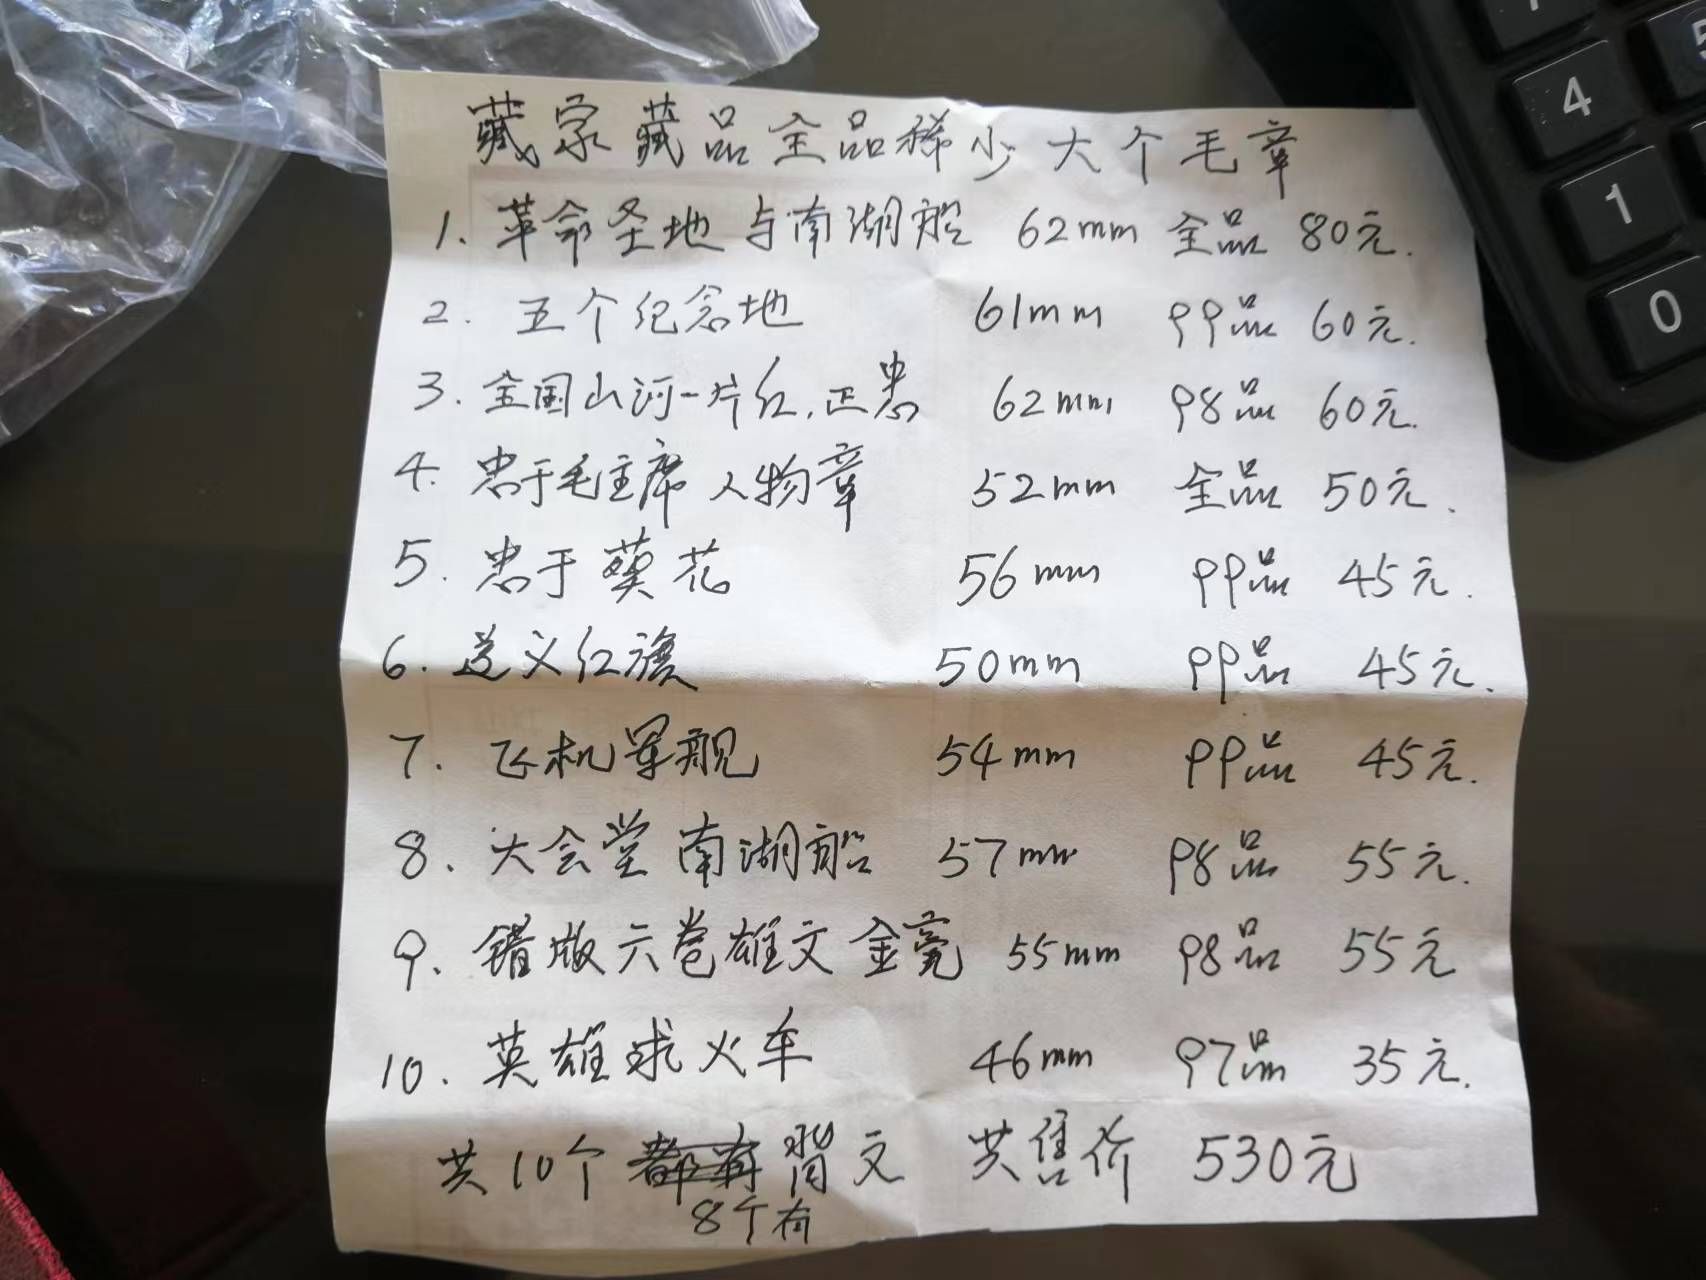 藏家藏品全品稀少大个毛章
1. 革命圣地与南湖船 62mm 全品 80元.
2. 五个纪念地 61mm 99品 60元.
3. 全国山河一片红,正忠 62mm 98品 60元.
4. 忠于毛主席人物章 52mm 全品 50元.
5. 忠于葵花 56mm 99品 45元.
6. 遵义红旗 50mm 99品 45元.
7. 飞机军舰 54mm 99品 45元.
8. 大会堂南湖船 57mm 98品 55元.
9. 错版六卷雄文金亮 55mm 98品 55元
10. 英雄球火车 46mm 97品 35元.
共10个都有背文 共售价 530元
8个有
4
1
0